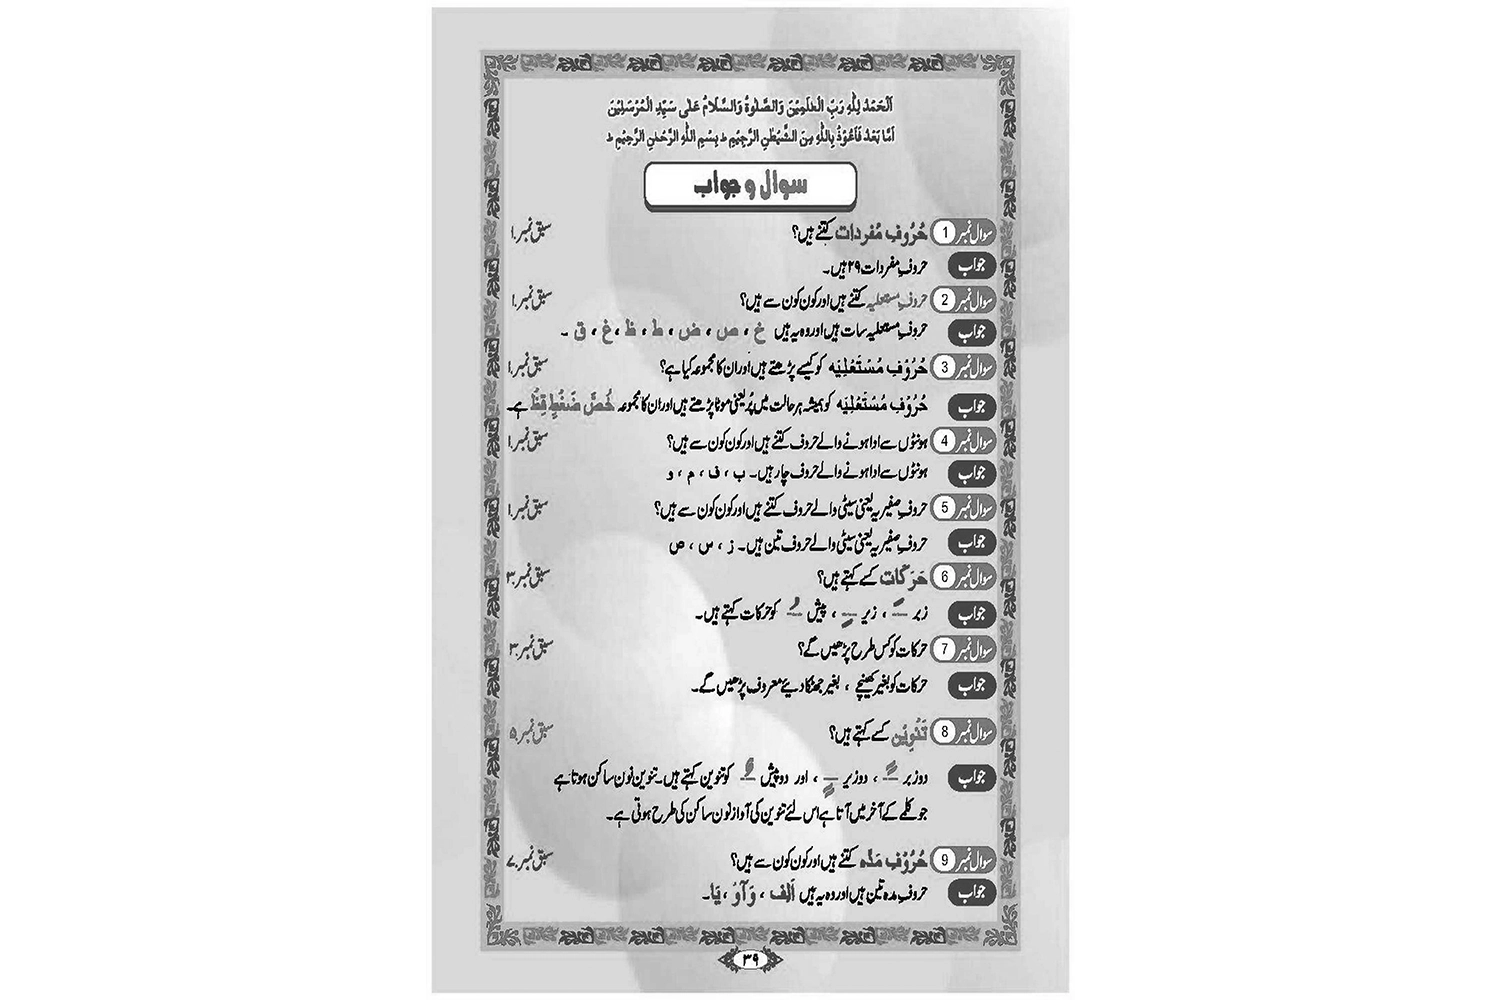 اَلْحَمْدُ لِلّٰهِ رَبِّ الْعٰلَمِيْنَ وَالصَّلٰوةُ وَالسَّلَامُ عَلٰى سَيِّدِ الْمُرْسَلِيْنَ
اَمَّا بَعْدُ فَاَعُوْذُ بِاللّٰهِ مِنَ الشَّيْطٰنِ الرَّجِيْمِ ؕ بِسْمِ اللّٰهِ الرَّحْمٰنِ الرَّحِيْمِ ؕ
سوال و جواب
سوال نمبر 1 حُرُوفِ مُفردات کتنے ہیں؟ سبق نمبر.۱
جواب حروفِ مفردات ۲۹ ہیں۔
سوال نمبر 2 حروفِ مستعلیہ کتنے ہیں اور کون کون سے ہیں؟ سبق نمبر.۱
جواب حروفِ مستعلیہ سات ہیں اور وہ یہ ہیں خ ، ص ، ض ، ط ، ظ ، غ ، ق ۔
سوال نمبر 3 حُرُوْفِ مُسْتَعْلِیَہ کو کیسے پڑھتے ہیں اور ان کا مجموعہ کیا ہے؟ سبق نمبر.۱
جواب حُرُوْفِ مُسْتَعْلِیَہ کو ہمیشہ ہر حالت میں پُر یعنی موٹا پڑھتے ہیں اور ان کا مجموعہ خُصَّ ضَغْطٍ قِظْ ہے۔
سوال نمبر 4 ہونٹوں سے ادا ہونے والے حروف کتنے ہیں اور کون کون سے ہیں؟ سبق نمبر.۱
جواب ہونٹوں سے ادا ہونے والے حروف چار ہیں۔ ب ، ف ، م ، و
سوال نمبر 5 حروفِ صفیریہ یعنی سیٹی والے حروف کتنے ہیں اور کون کون سے ہیں؟ سبق نمبر.۱
جواب حروفِ صفیریہ یعنی سیٹی والے حروف تین ہیں۔ ز ، س ، ص
سوال نمبر 6 حَرَکَات کسے کہتے ہیں؟ سبق نمبر.۳
جواب زبر ــَـ ، زیر ــِـ ، پیش ــُـ کو حرکات کہتے ہیں۔
سوال نمبر 7 حرکات کو کس طرح پڑھیں گے؟ سبق نمبر.۳
جواب حرکات کو بغیر کھینچے ، بغیر جھٹکا دیئے معروف پڑھیں گے۔
سوال نمبر 8 تَنْوِیْن کسے کہتے ہیں؟ سبق نمبر.۵
جواب دو زبر ــًـ ، دو زیر ــٍـ ، اور دو پیش ــٌـ کو تنوین کہتے ہیں۔ تنوین نون ساکن ہوتا ہے
جو کلمے کے آخر میں آتا ہے اس لئے تنوین کی آواز نون ساکن کی طرح ہوتی ہے۔
سوال نمبر 9 حُرُوْفِ مَدَّہ کتنے ہیں اور کون کون سے ہیں؟ سبق نمبر.۷
جواب حروفِ مدہ تین ہیں اور وہ یہ ہیں اَلِف ، وَآوْ ، یَا۔
۳۹